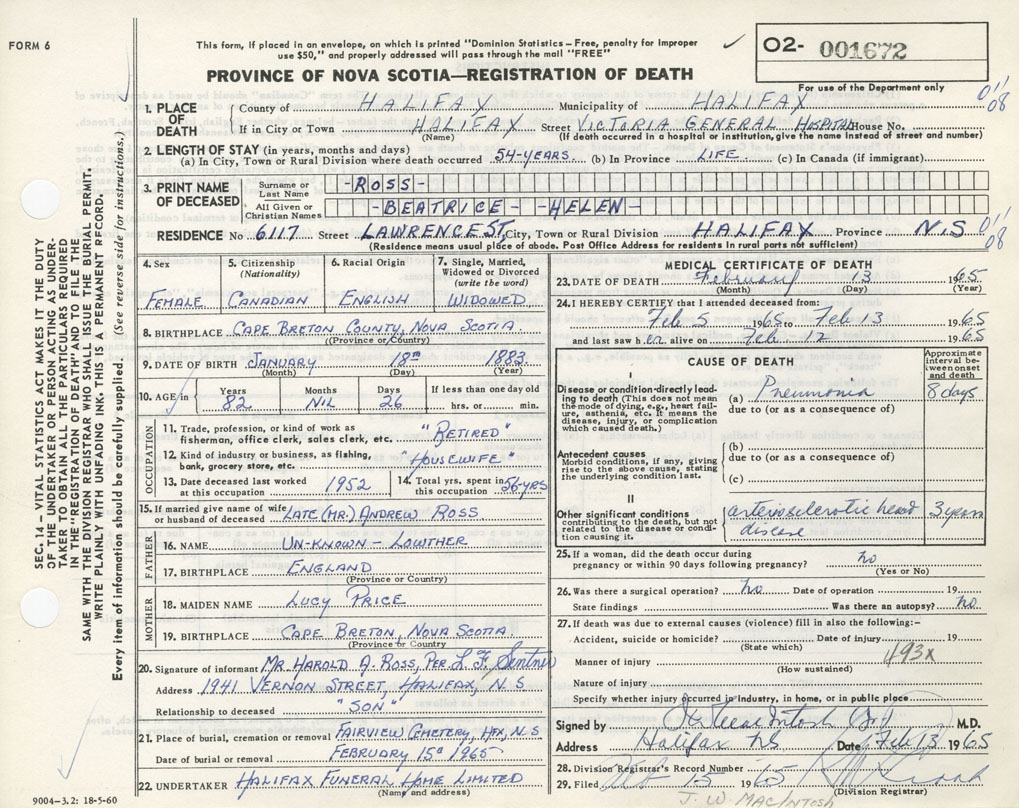 FORM 6
This form, if placed in an envelope, on which is printed "Dominion Statistics—Free, penalty for improper
use $50," and properly addressed will pass through the mail "FREE"
PROVINCE OF NOVA SCOTIA—REGISTRATION OF DEATH
O2- 001672
For use of the Department only
01'08
1. PLACE OF DEATH
County of HALIFAX Municipality of HALIFAX
If in City or Town HALIFAX Street VICTORIA GENERAL HOSPITAL House No.
(Name) (If death occurred in a hospital or institution, give the name instead of street and number)
2. LENGTH OF STAY (in years, months and days)
(a) In City, Town or Rural Division where death occurred 54-YEARS (b) In Province LIFE (c) In Canada (if immigrant)
3. PRINT NAME OF DECEASED
Surname or Last Name -ROSS-
All Given or Christian Names -BEATRICE- -HELEN-
RESIDENCE No 6117 Street LAWRENCE ST, City, Town or Rural Division HALIFAX Province N.S 01'08
(Residence means usual place of abode. Post Office Address for residents in rural parts not sufficient)
4. Sex FEMALE
5. Citizenship (Nationality) CANADIAN
6. Racial Origin ENGLISH
7. Single, Married, Widowed or Divorced (write the word) WIDOWED
8. BIRTHPLACE CAPE BRETON COUNTY, NOVA SCOTIA.
(Province or Country)
9. DATE OF BIRTH JANUARY 18th 1883
(Month) (Day) (Year)
10. AGE in Years 82 Months NIL Days 26 If less than one day old hrs. or min.
OCCUPATION
11. Trade, profession, or kind of work as fisherman, office clerk, sales clerk, etc. "RETIRED"
12. Kind of industry or business, as fishing, bank, grocery store, etc. "HOUSEWIFE"
13. Date deceased last worked at this occupation 1952
14. Total yrs. spent in this occupation 56-YRS
15. If married give name of wife or husband of deceased LATE (MR.) ANDREW ROSS
FATHER
16. NAME UN-KNOWN - LOWTHER
17. BIRTHPLACE ENGLAND
(Province or Country)
MOTHER
18. MAIDEN NAME LUCY PRICE
19. BIRTHPLACE CAPE BRETON, NOVA SCOTIA.
(Province or Country)
20. Signature of informant MR. HAROLD A. ROSS, PER.
Address 1941 VERNON STREET, HALIFAX, N.S
Relationship to deceased "SON"
21. Place of burial, cremation or removal FAIRVIEW CEMETERY, HFX, N.S
Date of burial or removal FEBRUARY 15th 1965
22. UNDERTAKER HALIFAX FUNERAL HOME LIMITED
(Name and address)
9004-3.2: 18-5-60
MEDICAL CERTIFICATE OF DEATH
23. DATE OF DEATH February 13 1965
(Month) (Day) (Year)
24. I HEREBY CERTIFY that I attended deceased from:
Feb 5 1965 to Feb 13 1965
and last saw her alive on Feb. 12 1965
CAUSE OF DEATH
Approximate interval between onset and death
I
Disease condition directly leading to death (This does not mean the mode of dying, e.g., heart failure, asthenia, etc. It means the disease, injury, or complication which caused death.)
(a) Pneumonia 8 days
due to (or as a consequence of)
Antecedent causes
Morbid conditions, if any, giving rise to the above cause, stating the underlying condition last.
(b)
due to (or as a consequence of)
(c)
II
Other significant conditions
contributing to the death, but not related to the disease or condition causing it.
arteriosclerotic heart disease 3 years
25. If a woman, did the death occur during pregnancy or within 90 days following pregnancy? no
(Yes or No)
26. Was there a surgical operation? no Date of operation 19
State findings Was there an autopsy? no.
27. If death was due to external causes (violence) fill in also the following:—
Accident, suicide or homicide? Date of injury 19
(State which)
493x
Manner of injury
(How sustained)
Nature of injury
Specify whether injury occurred in industry, in home, or in public place
Signed by M.D.
Address Halifax NS Date Feb 13 1965
28. Division Registrar's Record Number
29. Filed 15 1965
(Division Registrar)
J. W. MACINTOSH
SEC. 14—VITAL STATISTICS ACT MAKES IT THE DUTY
OF THE UNDERTAKER OR PERSON ACTING AS UNDER-
TAKER TO OBTAIN ALL THE PARTICULARS REQUIRED
IN THE "REGISTRATION OF DEATH" AND TO FILE THE
SAME WITH THE DIVISION REGISTRAR WHO SHALL ISSUE THE BURIAL PERMIT.
WRITE PLAINLY WITH UNFADING INK. THIS IS A PERMANENT RECORD.
Every item of information should be carefully supplied. (See reverse side for instructions.)